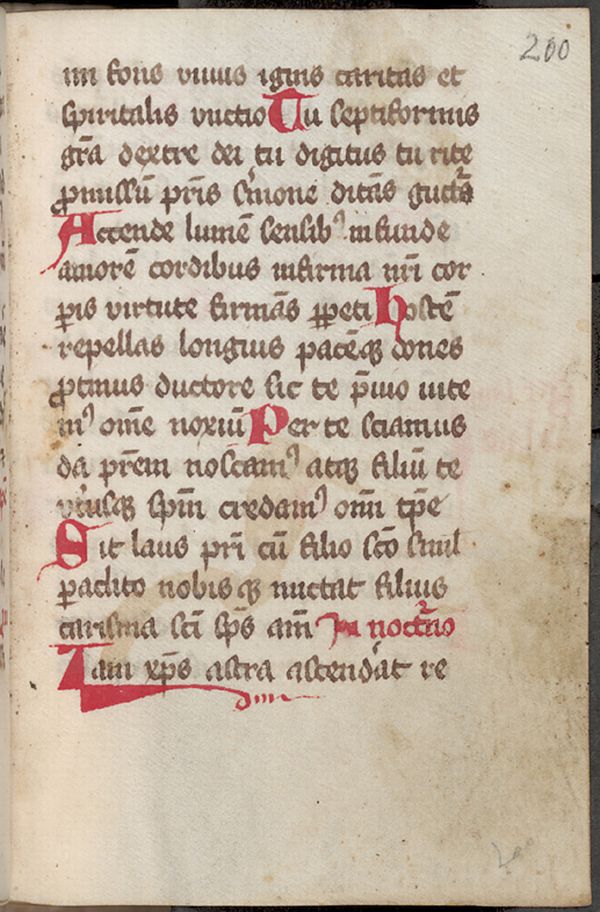 200
mi fons vivus ignis caritas et
spiritalis vnctio Tu septiformis
gr̄a dextre dei tu digitus tu rite
ꝓmissū pr̄is s̓mone ditās guttᷓa
Accende lumē sensibꝰ infunde
amorē cordibus infirma nr̄i cor
ꝑis virtute firmās ꝑpeti hostē
repellas longius pacēqꝫ dones
ꝓtinus ductore sic te p̄uio uite
mꝰ om̄e noxiū Per te sciamus
da pr̄em noscamꝰ atqꝫ filiū te
vtriusqꝫ sp̄m credamꝰ om̄i tp̄e
Sit laus pr̄i cū filio sc̄o simul
ꝑaclito nobis qꝫ mittat filius
carisma sc̄i sp̄s am̄ In noctᷓno
Iam xp̄s astra ascendᷓat re